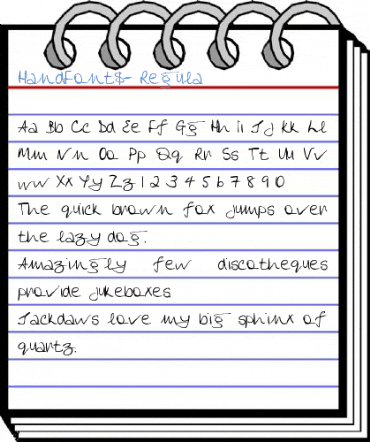 HandFont&- Regula
Aa Bb Cc Dd Ee Ff Gg Hh Ii Jj Kk Ll
Mm Nn Oo Pp Qq Rr Ss Tt Uu Vv
Ww Xx Yy Zz 1 2 3 4 5 6 7 8 9 0
The quick brown fox jumps over
the lazy dog.
Amazingly few discotheques
provide jukeboxes
Jackdaws love my big sphinx of
quartz.